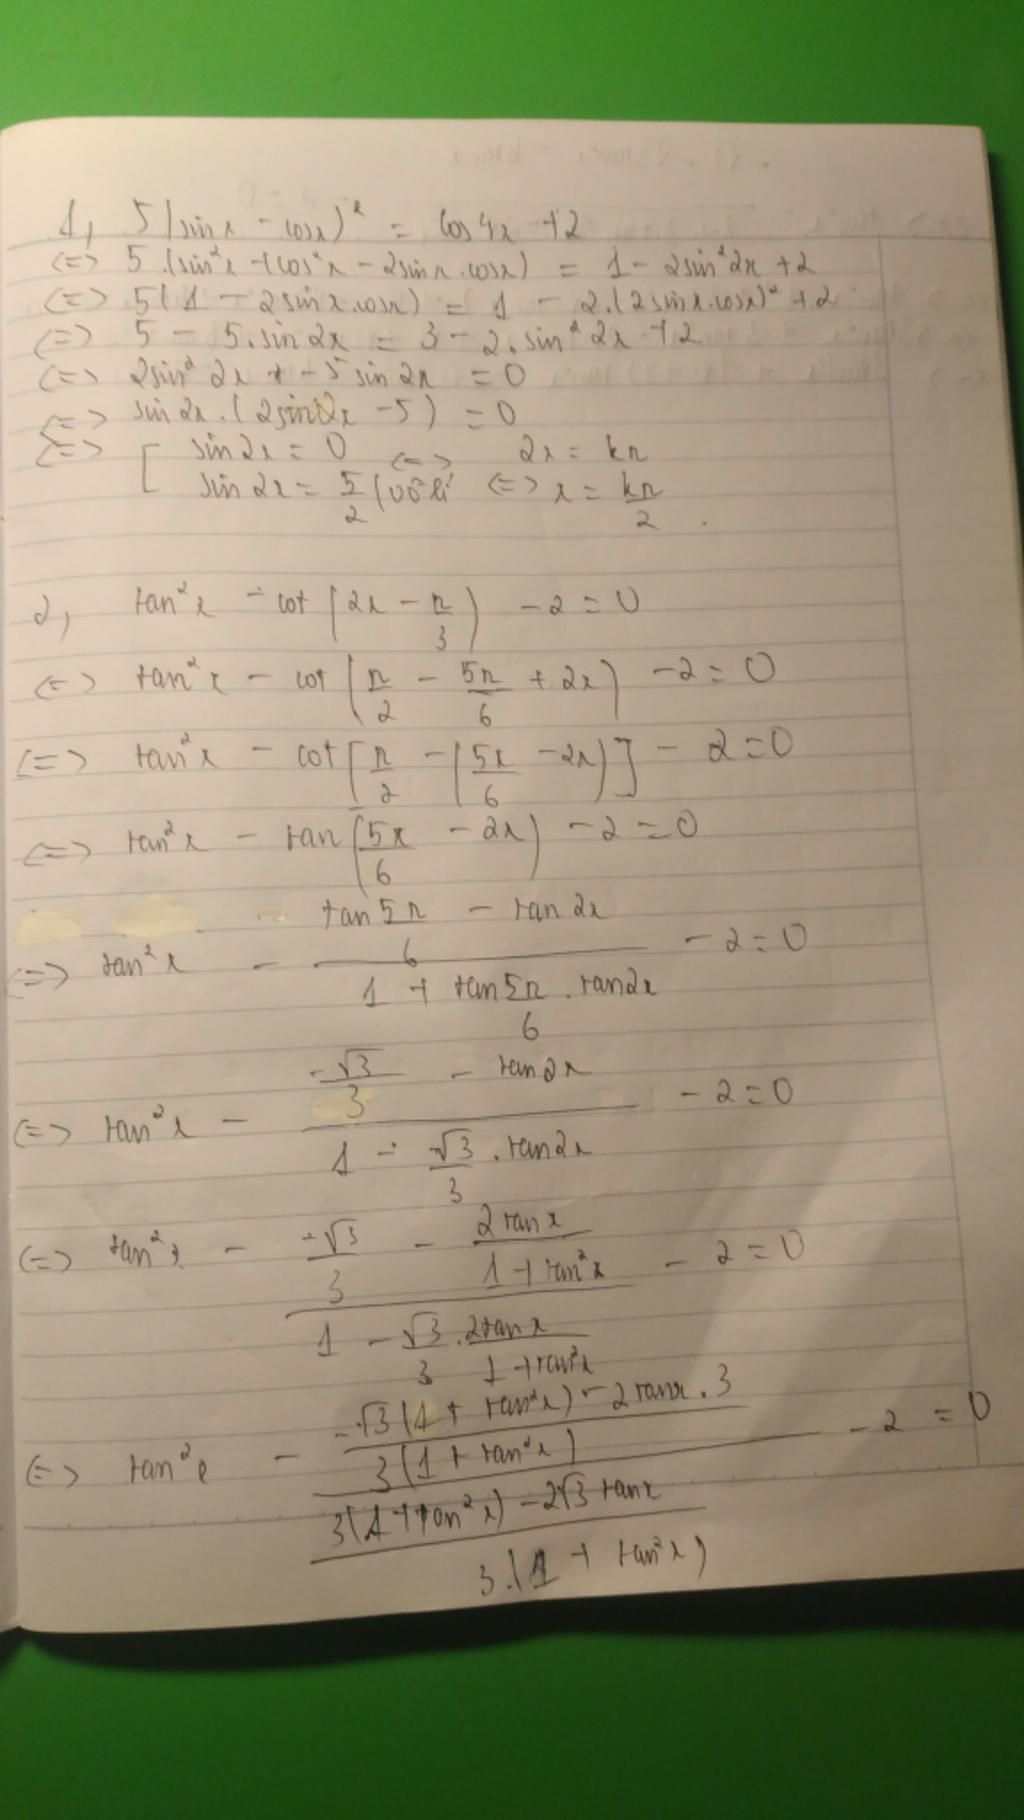 1, 5(sinx - cosx)² = cos4x + 2
<=> 5.(sin²x + cos²x - 2sinx.cosx) = 1 - 2sin²2x + 2
<=> 5(1 - 2sinx.cosx) = 1 - 2.(2sinx.cosx)² + 2
<=> 5 - 5.sin2x = 3 - 2.sin²2x + 2
<=> 2sin²2x + - 5sin2x = 0
<=> sin2x.(2sin2x - 5) = 0
<=> [ sin2x = 0 <=> 2x = kπ
sin2x = 5/2 (vô lí <=> x = kπ/2 .
2, tan²x - cot(2x - π/3) - 2 = 0
<=> tan²x - cot(π/2 - 5π/6 + 2x) - 2 = 0
<=> tan²x - cot[π/2 - (5x/6 - 2x)] - 2 = 0
<=> tan²x - tan(5x/6 - 2x) - 2 = 0
<=> tan²x - (tan 5π/6 - tan2x)/(1 + tan 5π/6 . tan2x) - 2 = 0
<=> tan²x - (-√3/3 - tan2x)/(1 - √3/3 . tan2x) - 2 = 0
<=> tan²x - (-√3/3 - 2tanx/(1 + tan²x))/(1 - √3/3 . 2tanx/(1 + tan²x)) - 2 = 0
<=> tan²x - ((-√3(1 + tan²x) - 2tanx.3)/(3(1 + tan²x)))/((3(1 + tan²x) - 2√3tanx)/(3.(1 + tan²x))) - 2 = 0